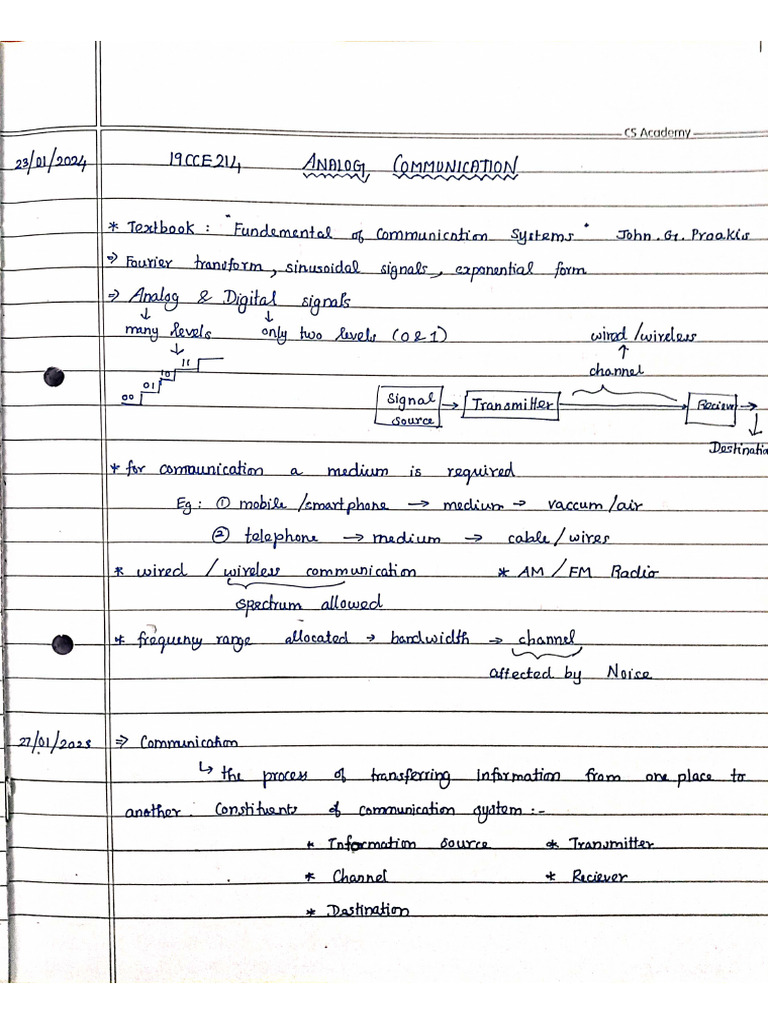 1
CS Academy
23/01/2024 19CCE214 ANALOG COMMUNICATION
* Textbook : "Fundemental of communication Systems" John. G. Proakis
⇒ Fourier transform, sinusoidal signals, exponential form
⇒ Analog & Digital signals
↓ ↓
many levels only two levels (0 & 1) wired/wireless
↑
channel
00 01 10 11
Signal source → Transmitter → Reciever →
Destination
* for communication a medium is required
Eg: ① mobile/smartphone → medium → vaccum/air
② telephone → medium → cable/wires
* wired / wireless communication * AM/FM Radio
spectrum allowed
* frequency range allocated → bandwidth → channel
affected by Noise
27/01/2025 ⇒ Communication
↳ the process of transferring information from one place to
another. Constituents of communication system :-
* Information source * Transmitter
* Channel * Reciever
* Destination